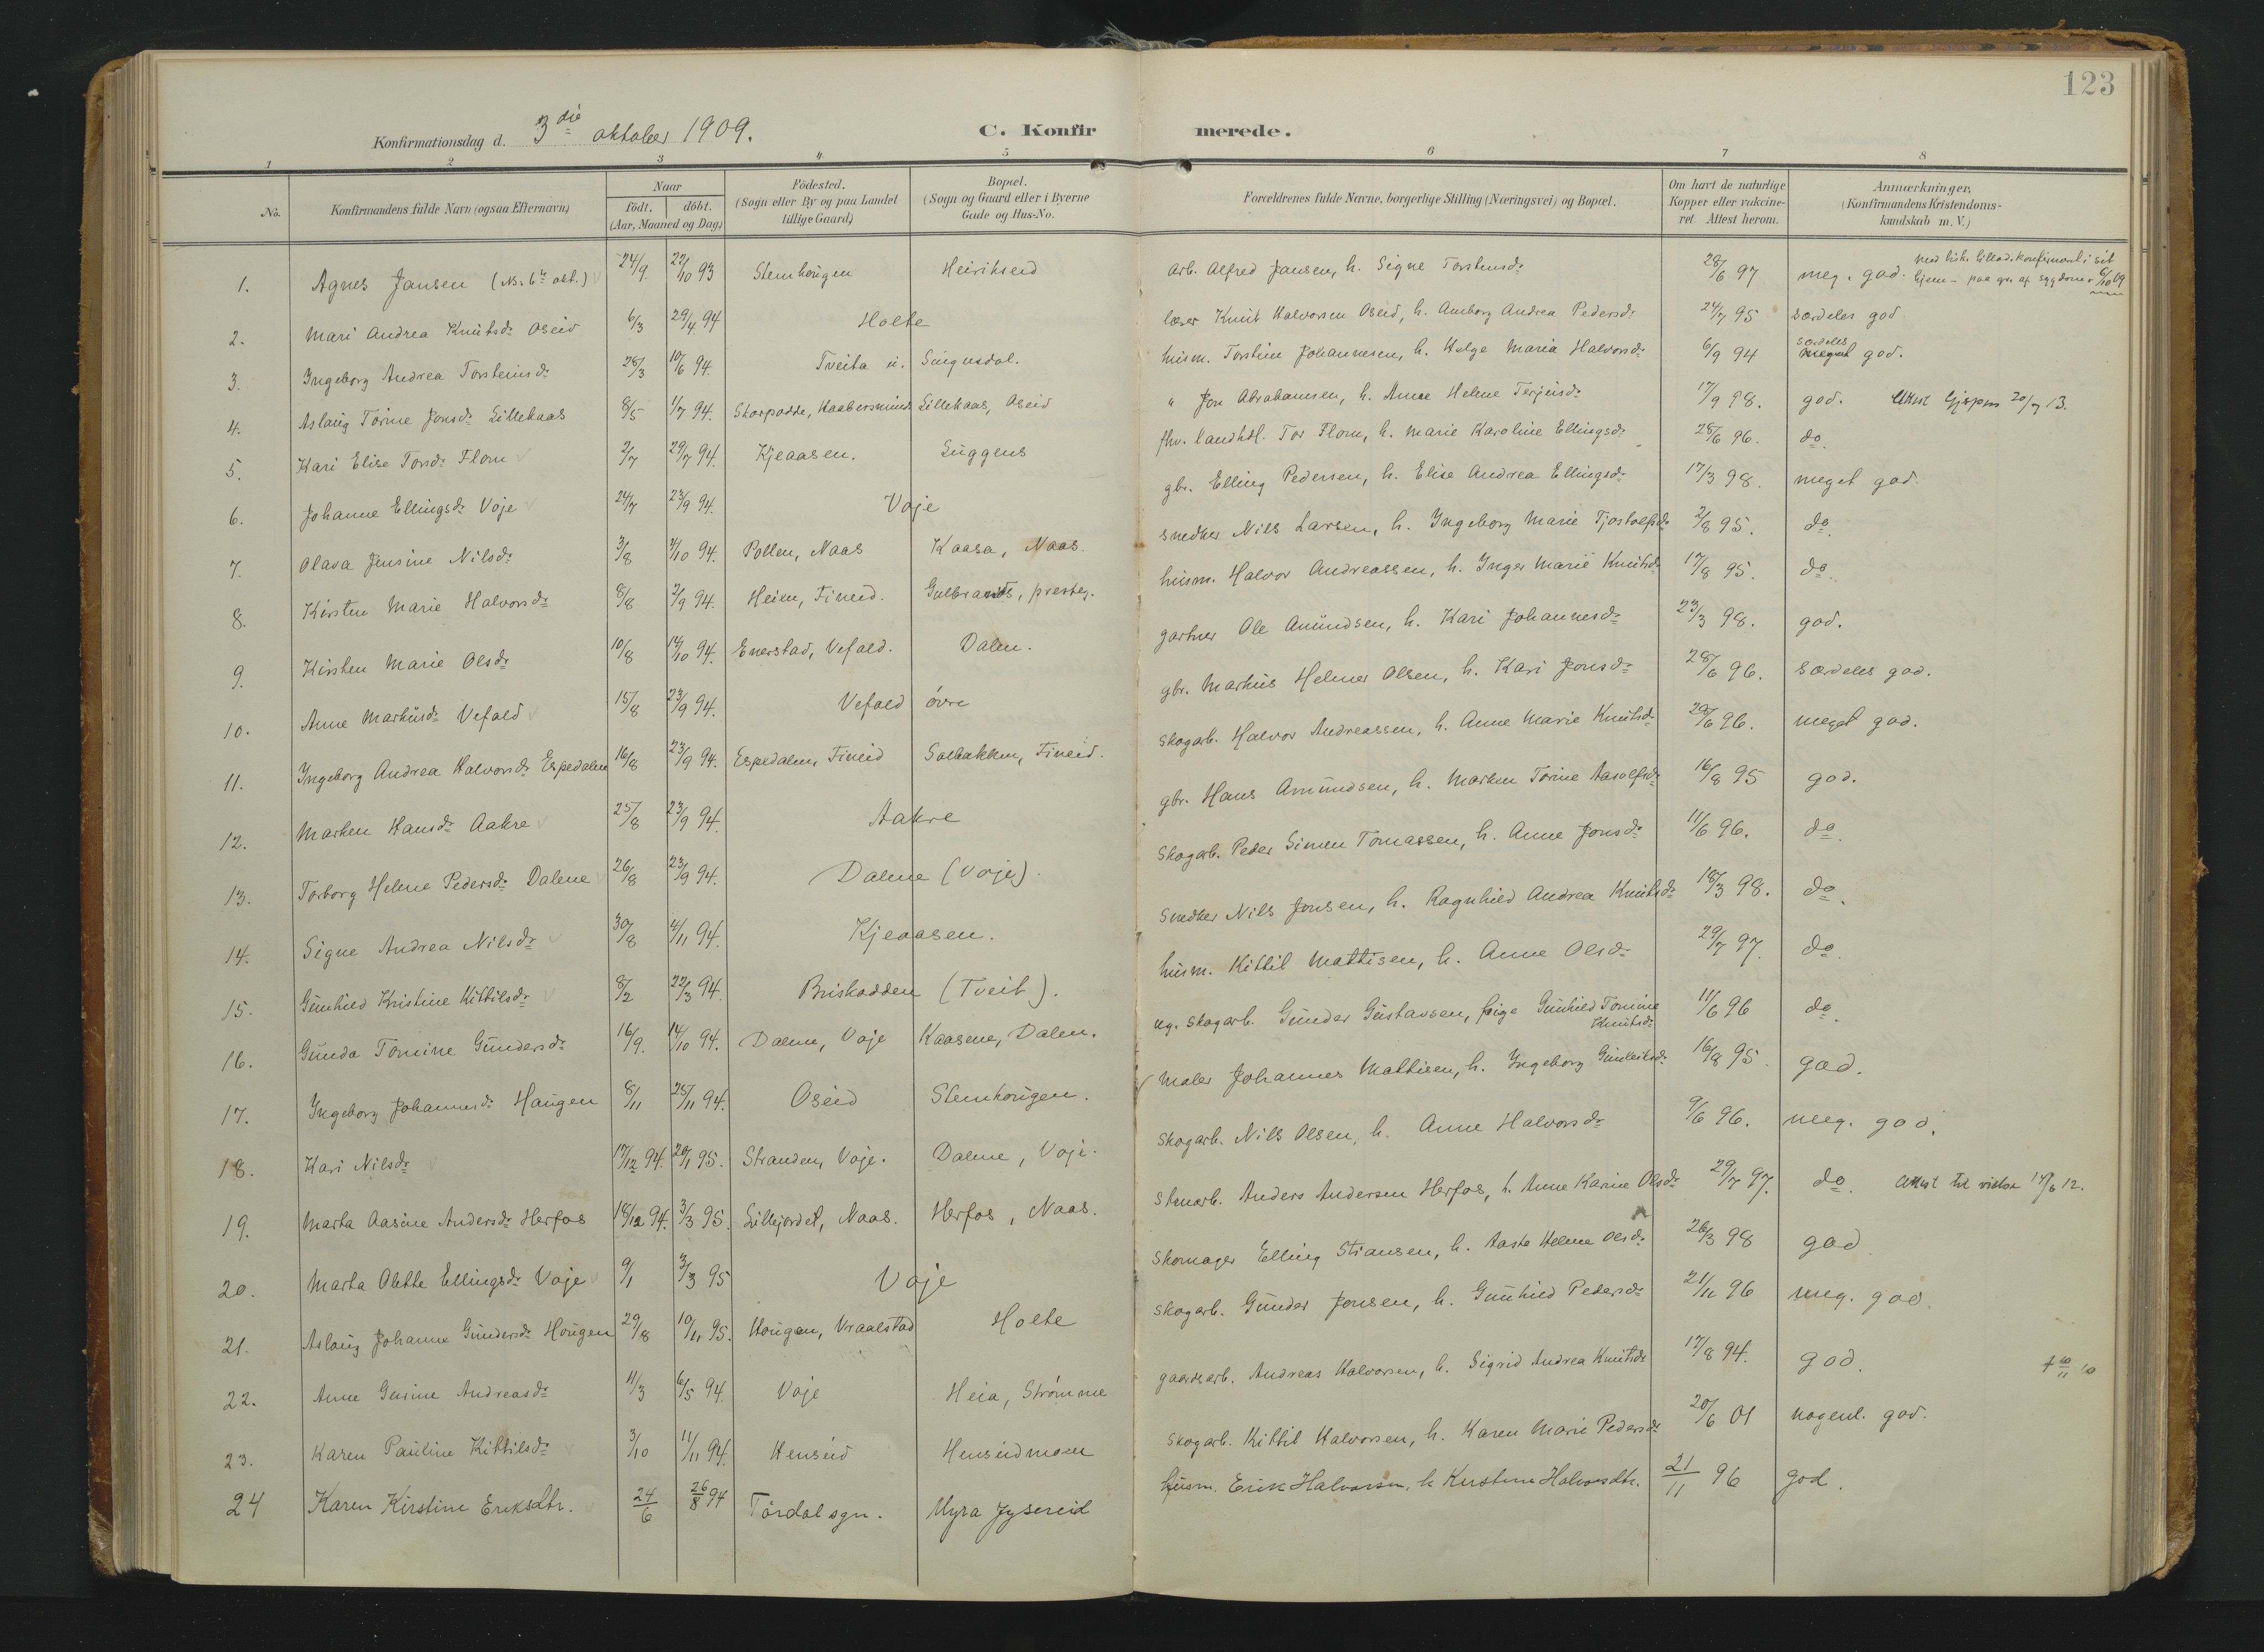 123
Konfirmationsdag d. 3die oktober 1909. C. Konfirmerede.
1 2 3 4 5 6 7 8
No. Konfirmandens fulde Navn (ogsaa Efternavn) Naar født. døbt. (Aar, Maaned og Dag) Fødested. (Sogn eller By og paa Landet tillige Gaard) Bopæl. (Sogn og Gaard eller i Byerne Gade og Hus-No. Forældrenes fulde Navne, borgerlige Stilling (Næringsvei) og Bopæl. Om havt de naturlige Kopper eller vakcineret. Attest herom. Anmærkninger. (Konfirmandens Kristendomskundskab m. V.)
1. Agnes Jansen 24/9 22/10 93 Stemhougen Heirikseid arb. Alfred Jansen, h. Signe Torstensdr 28/6 97 meg. god. hjem - paa gr. af sygdom 6/10 09
2. Mari Andrea Knutsdr Oseid 6/3 29/4 94 Holte lærer Knut Halvorsen Oseid, h. Anborg Andrea Pedersdr 24/7 95 særdeles god.
3. Ingeborg Andrea Torsteinsdr 28/3 10/6 94. Tveita u. Singusdal. husm. Torstein Johannesen, h. Helge Maria Halvorsdr 6/9 94 særdeles meget god.
4. Aslaug Torine Jonsdr Lillekaas 8/5 1/7 94. Skarpodde, Lillekaas, Oseid " Jon Abrahamsen, h. Anne Helene Terjusdr 17/9 98. god. Attest 20/7 13.
5. Kari Elise Torsdr Flom 2/7 29/7 94. Kjeaasen. Suggens fhv. landhdl. Tor Flom, h. Marie Karoline Ellingsdr 28/6 96. do.
6. Johanne Ellingsdr Voje 24/7 23/9 94. Voje gbr. Elling Pedersen, h. Elise Andrea Ellingsdr 17/3 98. meget god.
7. Olava Jensine Nilsdr 3/8 4/10 94. Pollen, Naas Kaasa, Naas. snedker Nils Larsen, h. Ingeborg Marie Tjostolfsdr 2/8 95. do.
8. Kirsten Marie Halvorsdr 8/8 2/9 94. Heien, Fineid. Gulbrands, presteg. husm. Halvor Andreassen, h. Inger Marie Knutsdr 17/8 95. do.
9. Kirsten Marie Olsdr 10/8 14/10 94. Enerstad, Vefald. Dalen. gartner Ole Amundsen, h. Kari Johannesdr 23/3 98. god.
10. Anne Markusdr Vefald 15/8 23/9 94. Vefald øvre gbr. Markus Helmer Olsen, h. Kari Jonsdr 28/6 96. særdeles god.
11. Ingeborg Andrea Halvorsdr Espedalen 16/8 23/9 94. Espedalen, Fineid Solbakken, Fineid. skogarb. Halvor Andreassen, h. Anne Marie Knutsdr 29/6 96. meget god.
12. Marken Hansdr Aakre 25/8 23/9 94. Aakre gbr. Hans Amundsen, h. Marken Torine Aasolfsdr 16/8 95 god.
13. Torborg Helene Pedersdr Dalene 26/8 23/9 94. Dalene (Voje). Skogarb. Peder Simen Tomassen, h. Anne Jonsdr 11/6 96. do.
14. Signe Andrea Nilsdr 30/8 4/11 94. Kjeaasen. Snedker Nils Jonsen, h. Ragnhild Andrea Knutsdr 18/3 98. do.
15. Gunhild Kristine Kittilsdr 8/2 22/3 94. Briskodden (Tveit). husm. Kittil Mattisen, h. Anne Olsdr 29/7 97. do.
16. Gunda Tomine Gundersdr 16/9. 14/10 94. Dalene, Voje Kaasene, Dalen. ug. skogarb. Gunder Gustavsen, pige Gunhild Tomine Knutsdr 11/6 96 do.
17. Ingeborg Johannesdr Haugen 8/11 25/11 94. Oseid Stemhougen. Maler Johannes Mattisen, h. Ingeborg Gunleiksdr 16/8 95. god.
18. Kari Nilsdr 17/12 94. 20/1 95. Stranden, Voje. Dalene, Voje. Skogarb. Nils Olsen, h. Anne Halvorsdr 9/6 96. meg. god.
19. Marta Aasine Andersdr Herfos 18/12 94. 3/3 95. Lillejordet, Naas. Herfos, Naas. Stenarb. Anders Andersen Herfos, h. Anne Karine Olsdr 29/7 97. do. Attest til 17/6 12.
20. Marta Olette Ellingsdr Voje 9/1 3/3 95 Voje Skomager Elling Stiansen, h. Aaste Helene Olsdr 26/3 98 god
21. Aslaug Johanne Gundersdr Hougen 29/8 10/11 95. Hougen, Vraalstad Holte Skogarb. Gunder Jonsen, h. Gunhild Pedersdr 21/11 96 meg. god.
22. Anne Gurine Andreasdr 11/3 6/5 94. Voje Heia, Strømme gaardsarb. Andreas Halvorsen, h. Sigrid Andrea Knutsdr 17/8 94. god.
23. Karen Pauline Kittilsdr 3/10 11/11 94. Henseid Henseidmoen Skogarb. Kittil Halvorsen, h. Karen Marie Pedersdr 20/6 01 nogenl. god.
24 Karen Kirstine Eriksdtr. 24/6 26/8 94 Tørdal sgn. Myra Jysereid husm. Erik Halvorsen, h Kirstine Halvorsdtr. 21/11 96 god.